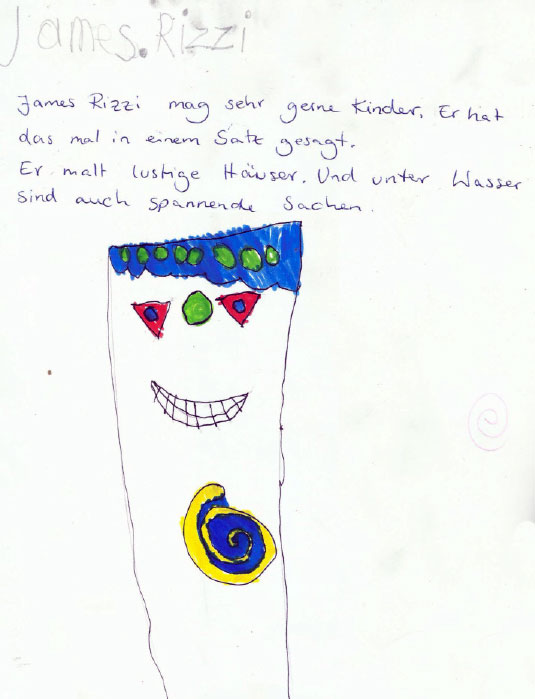 James.Rizzi
James Rizzi mag sehr gerne Kinder. Er hat
das mal in einem Satz gesagt.
Er malt lustige Häuser. Und unter Wasser
sind auch spannende Sachen.